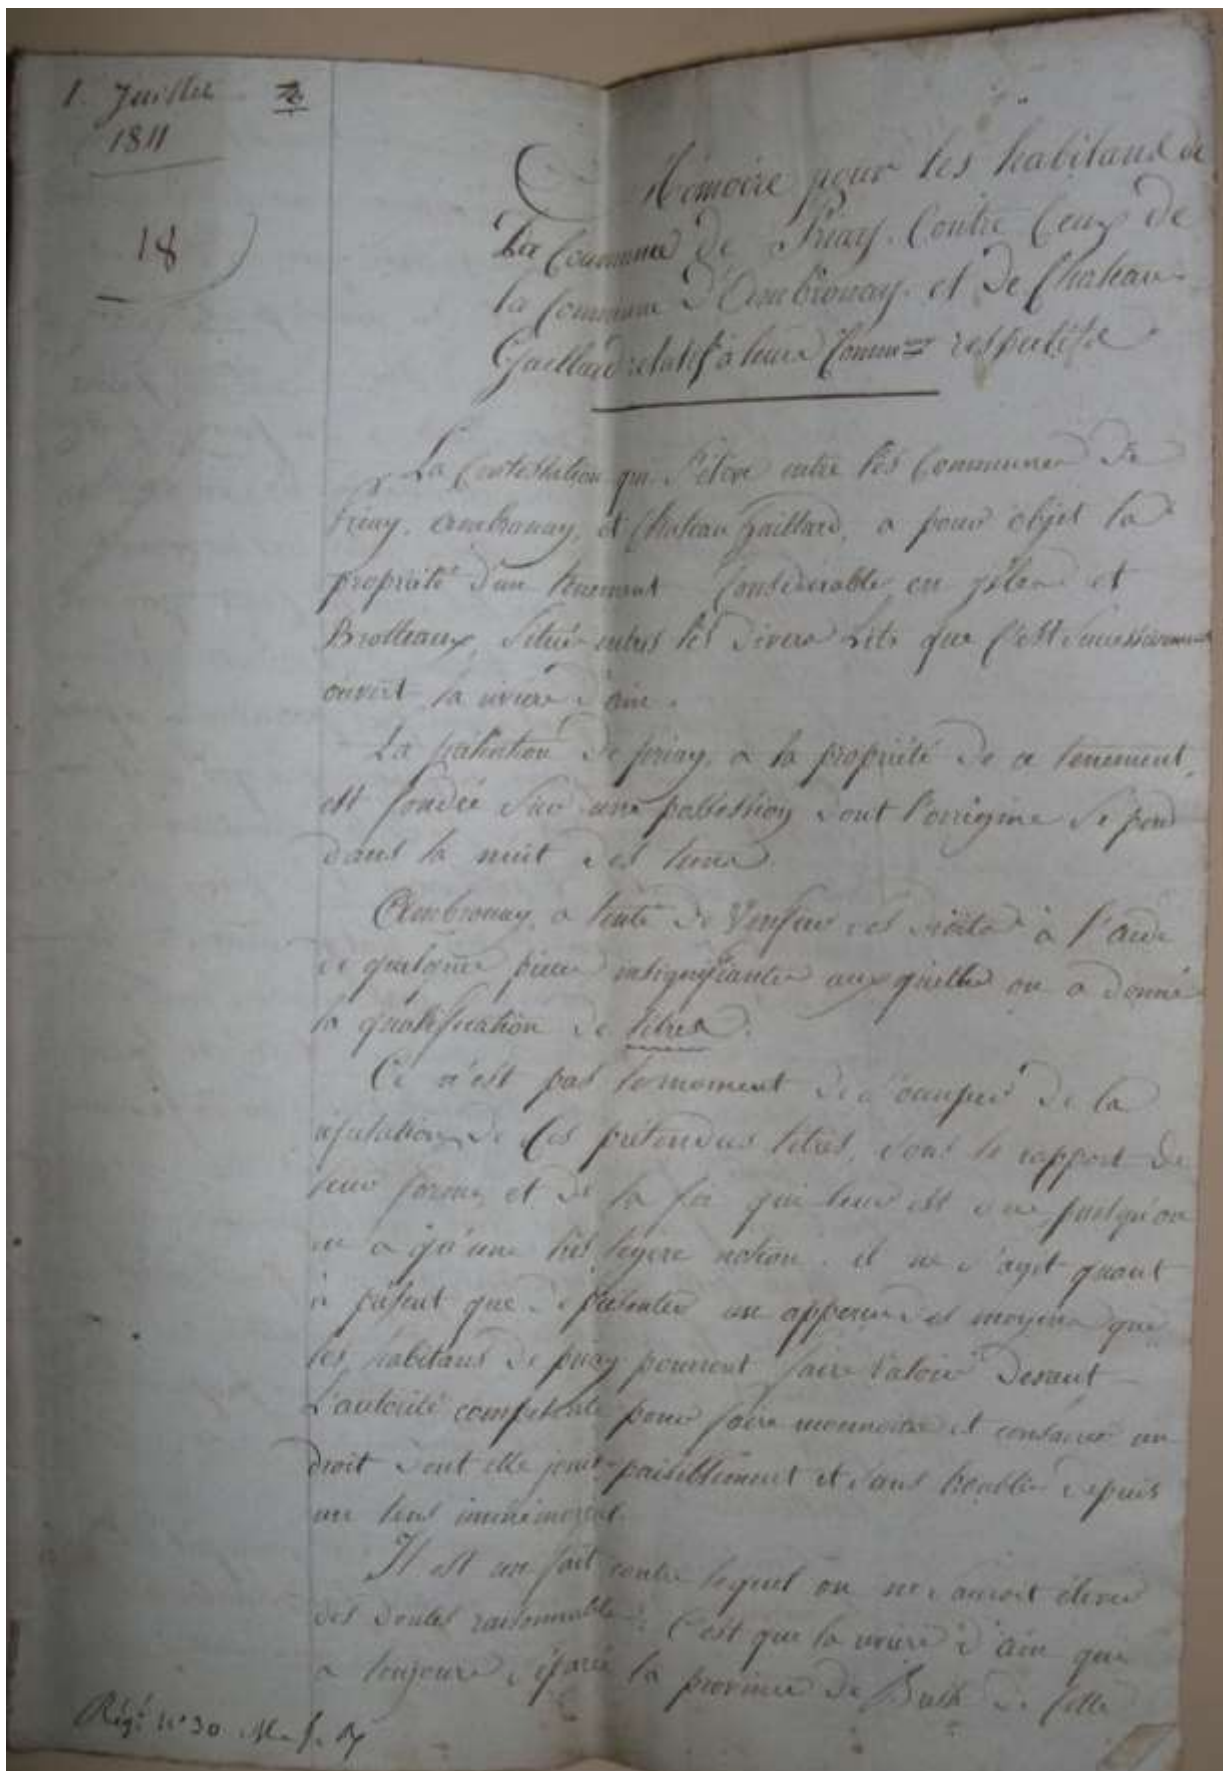 1. Juillet
1811
18
Mémoire pour les habitans de
La Commune de Priay. Contre Ceux de
la Commune d'Ambronay. et de Chateau-
Gaillard relatif à leurs Commun respectifs
La Contestation qui s'élève entre les Communes de
Priay, Ambronay, et Chateau Gaillard, a pour objet la
propriété d'un tenement Considérable en isles et
Brotteaux, situés entres les divers Lits que s'est successivement
ouvert la riviere d'ain.
La prétention de priay, a la propriété de ce tenement,
est fondée sur une possession dont l'origine se perd
dans la nuit des tems
Ambronay, a tenté de ses droits à l'aide
de quelques pièces insignifiantes aux quelles on a donné
la qualification de titres.
Ce n'est pas le moment de s'occuper de la
réfutation de Ces prétendus titres, sous le rapport de
leur forme, et de la foi qui leur est due puisqu'on
n'en a qu'une très légere notion. il ne s'agit quant
à présent que de présenter un apperçu des moyens que
les habitans de priay pourront faire valoir devant
L'autorité compétente pour faire reconnoitre et consacrer un
droit dont elle jouit paisiblement et sans trouble depuis
un tems immémorial.
Il est un fait contre lequel on ne sauroit élever
des doutes raisonnables: C'est que la riviere d'ain qui
a toujours séparé la province de de Celle
Regé. N° 30.